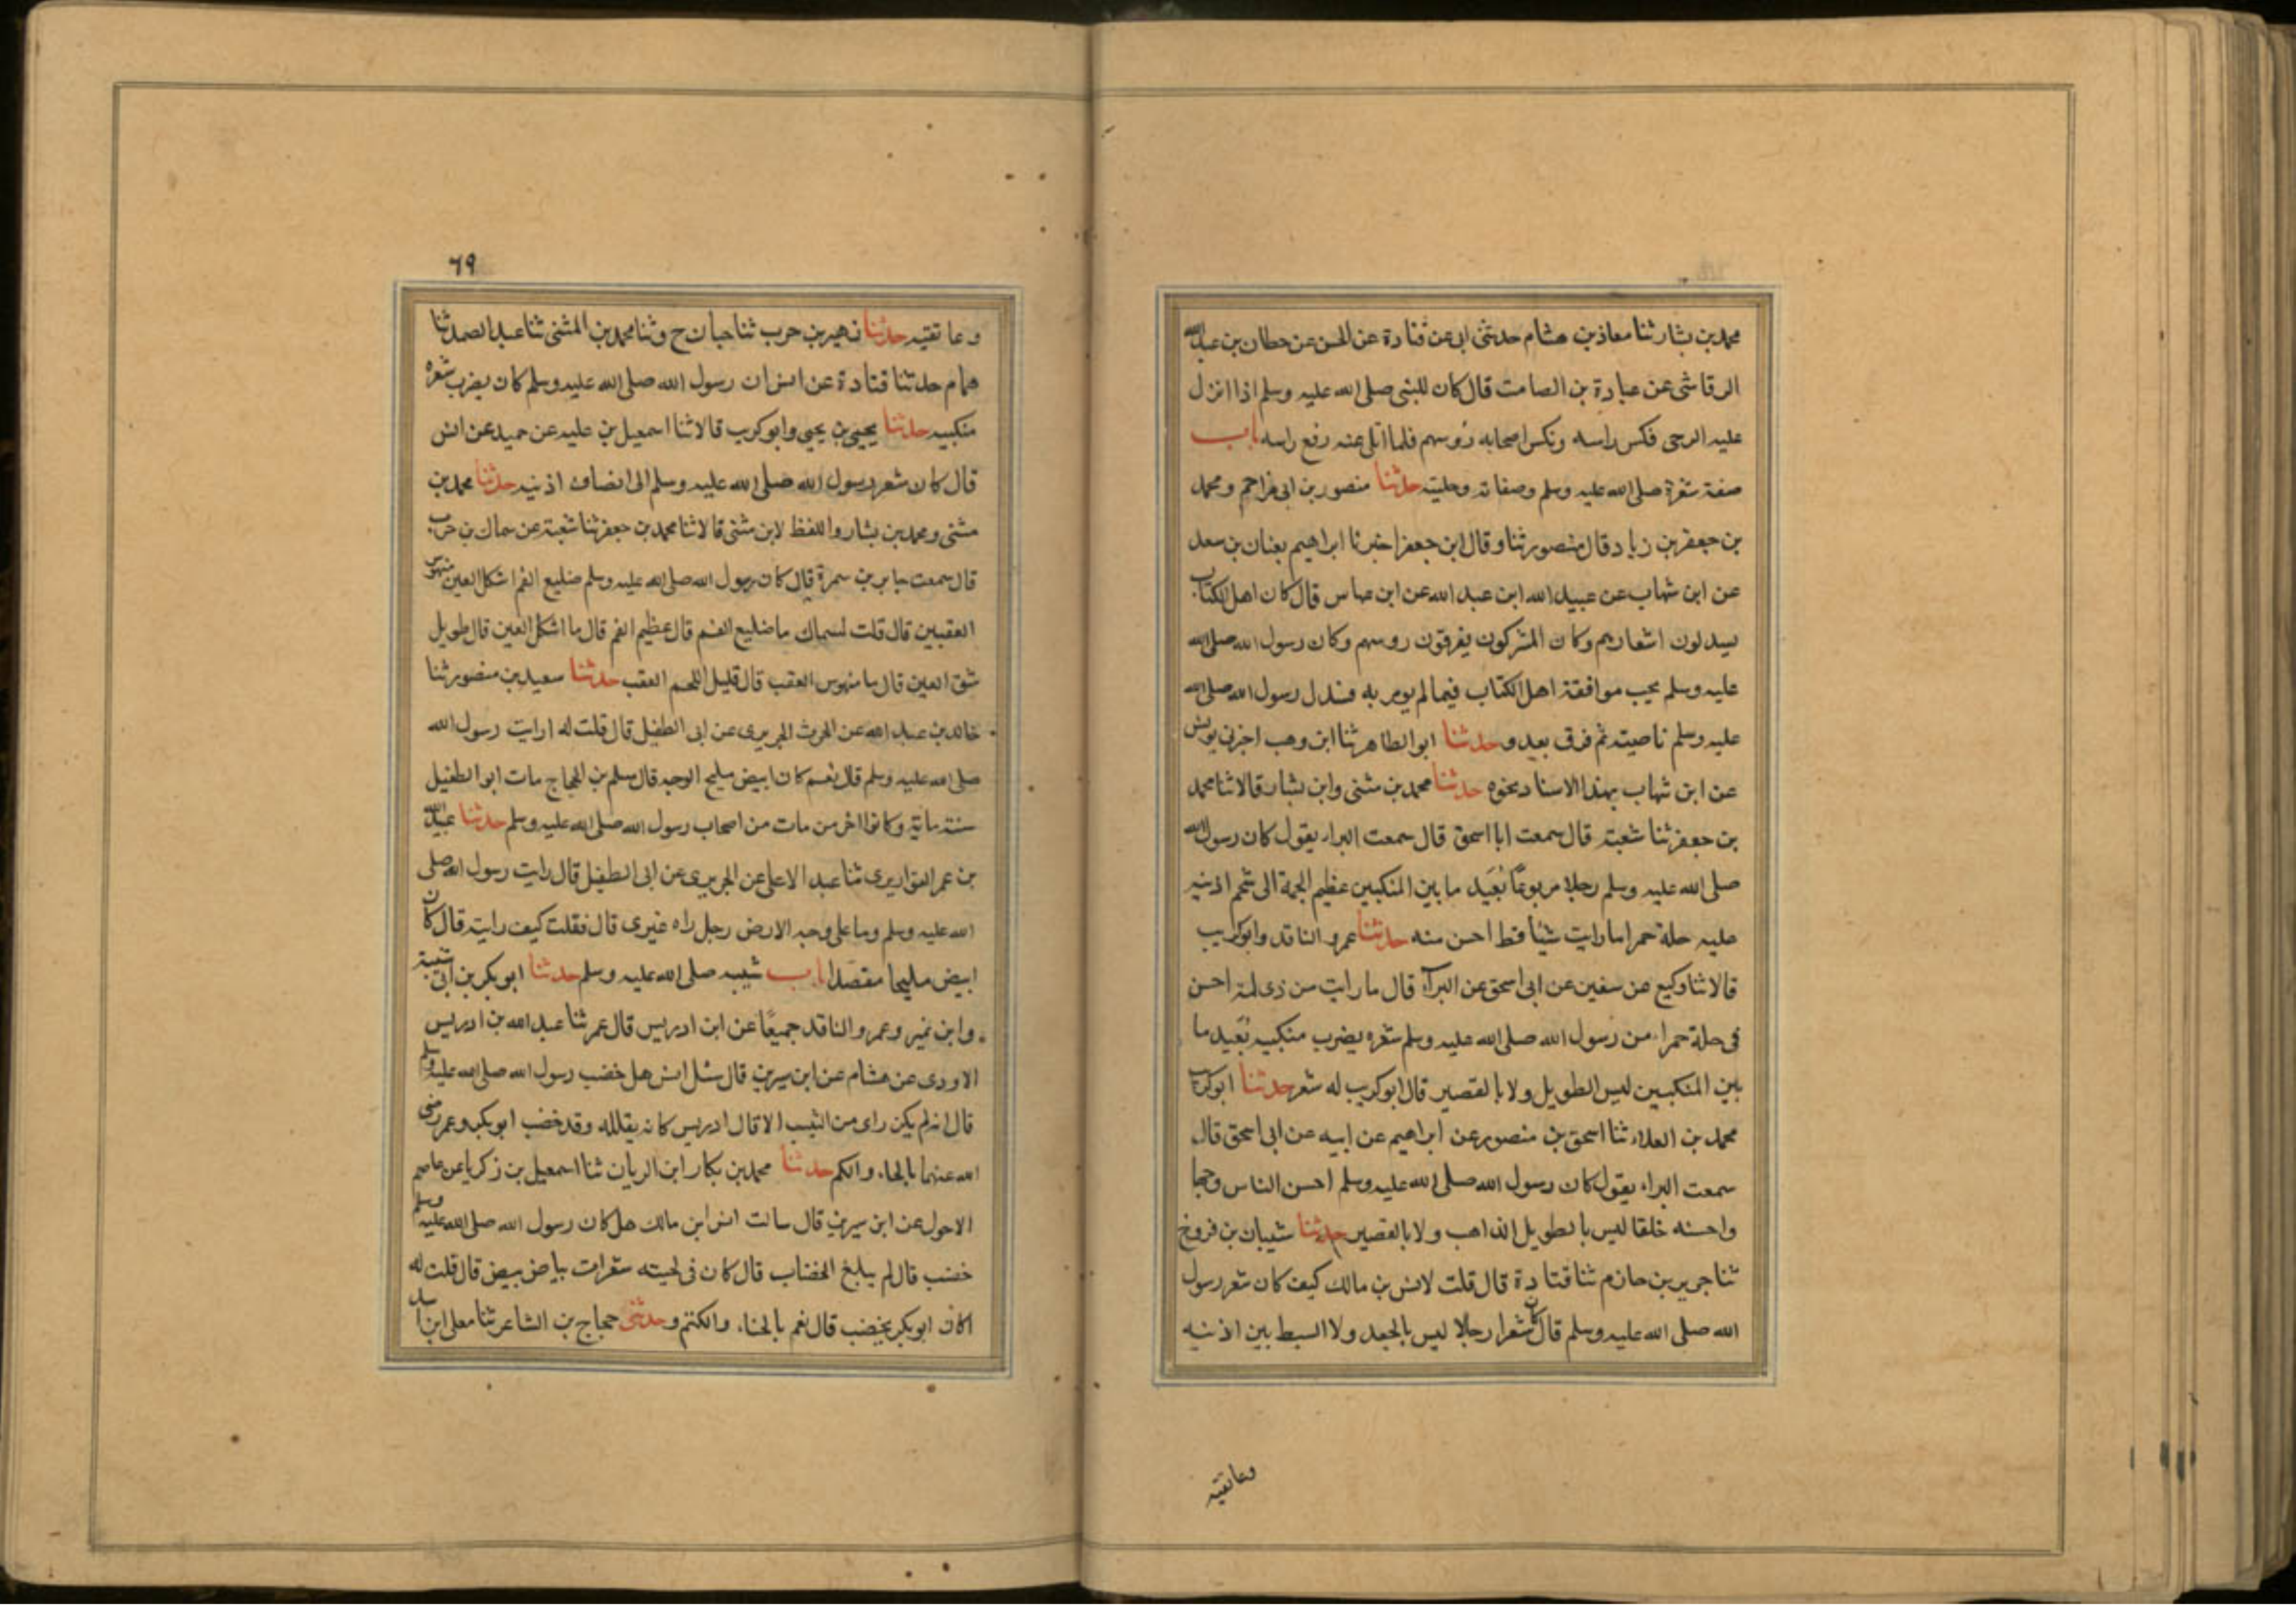 محمد بن بشار ثنا معاذ بن هشام حدثنی ابی عن قتادة عن الحسن عن حطان بن عبد الله
الرقاشی عن عبادة بن الصامت قال کان للنبی صلی الله علیه وسلم اذا انزل
علیه الوحی فکس راسه ونکس اصحابه رؤسهم فلما اتلی عنه رفع راسه باب
صفة شعرة صلی الله علیه وسلم وصفاته وحلیته حدثنا منصور بن ابی مزاحم ومحمد
بن جعفر بن زیاد قال منصور ثنا وقال ابن جعفر اخبرنا ابراهیم یعنیان بن سعد
عن ابن شهاب عن عبید الله ابن عبد الله عن ابن عباس قال کان اهل الکتاب
یسدلون اشعارهم وکان المشرکون یفرقون روسهم وکان رسول الله صلی الله
علیه وسلم یحب موافقة اهل الکتاب فیما لم یومر به فسدل رسول الله صلی الله
علیه وسلم ناصیته ثم فرق بعد وحدثنا ابو الطاهر ثنا ابن وهب اخبرنی یونس
عن ابن شهاب بهذا الاسناد نحوه حدثنا محمد بن مثنی وابن بشار قالا ثنا محمد
بن جعفر ثنا شعبة قال سمعت ابا اسحق قال سمعت البراء یقول کان رسول الله
صلی الله علیه وسلم رجلا مربوعًا بُعَید ما بین المنکبین عظیم الجمة الی شحم اذنیه
علیه حلة حمرا ما رایت شیئا قط احسن منه حدثنا عمرو الناقد وابو کریب
قالا ثنا وکیع عن سفین عن ابی اسحق عن البرآء قال ما رایت من ذی لمة احسن
فی حلة حمراء من رسول الله صلی الله علیه وسلم شعره یضرب منکبیه بُعَید ما
بین المنکبین لیس الطویل ولا بالقصیر قال ابو کریب له شعر حدثنا ابو کریب
محمد بن العلاء ثنا اسحق بن منصور عن ابراهیم عن ابیه عن ابی اسحق قال
سمعت البراء یقول کان رسول الله صلی الله علیه وسلم احسن الناس وجها
واحسنه خلقا لیس بالطویل الذاهب ولا بالقصیر حدثنا شیبان بن فروخ
ثنا جریر بن حازم ثنا قتادة قال قلت لانس بن مالک کیف کان شعر رسول
الله صلی الله علیه وسلم قال کان شعرا رجلا لیس بالجعد ولا السبط بین اذنیه
وعاتقیه
٦٩
وعاتقیه حدثنا زهیر بن حرب ثنا حبان ح وثنا محمد بن المثنی ثنا عبد الصمد ثنا
همام حدثنا قتادة عن انس ان رسول الله صلی الله علیه وسلم کان یضرب شعره
منکبیه حدثنا یحیی بن یحیی وابو کرب قالا ثنا اسمعیل بن علیه عن حمید عن انس
قال کان شعر رسول الله صلی الله علیه وسلم الی انصاف اذنیه حدثنا محمد بن
مثنی ومحمد بن بشار واللفظ لابن مثنی قالا ثنا محمد بن جعفر ثنا شعبة عن سماک بن حرب
قال سمعت جابر بن سمرة قال کان رسول الله صلی الله علیه وسلم ضلیع الفم اشکل العین منهوس
العقبین قال قلت لسماک ما ضلیع الفم قال عظیم الفم قال ما اشکل العین قال طویل
شق العین قال ما منهوس العقب قال قلیل اللحم العقب حدثنا سعید بن منصور ثنا
خالد بن عبد الله عن الحرث الجریری عن ابی الطفیل قال قلت له ارایت رسول الله
صلی الله علیه وسلم قال نعم کان ابیض ملیح الوجه قال مسلم بن الحجاج مات ابو الطفیل
سنة مایة وکانوا اخر من مات من اصحاب رسول الله صلی الله علیه وسلم حدثنا عبید الله
بن عمر القواریری ثنا عبد الاعلی عن الجریری عن ابی الطفیل قال رایت رسول الله صلی
الله علیه وسلم وما علی وجه الارض رجل راه غیری قال فقلت کیف رایته قال کان
ابیض ملیحا مقصدا باب شیبه صلی الله علیه وسلم حدثنا ابو بکر بن ابی شیبة
وابن نمیر وعمرو الناقد جمیعًا عن ابن ادریس قال عمر ثنا عبد الله بن ادریس
الاودی عن هشام عن ابن سیرین قال سئل انس هل خضب رسول الله صلی الله علیه وسلم
قال انه لم یکن رای من الشیب الا قال ادریس کانه یقلله وقد خضب ابو بکر وعمر رضی
الله عنهما بالحناء والکم حدثنا محمد بن بکار ابن الریان ثنا اسمعیل بن زکریا عن عاصم
الاحول عن ابن سیرین قال سالت انس ابن مالک هل کان رسول الله صلی الله علیه وسلم
خضب قال لم یبلغ الخضاب قال کان فی لحیته شعرات بیاض بیض قال قلت له
اکان ابو بکر یخضب قال نعم بالحناء والکتم وحدثنی حجاج بن الشاعر ثنا معلی ابن اسد